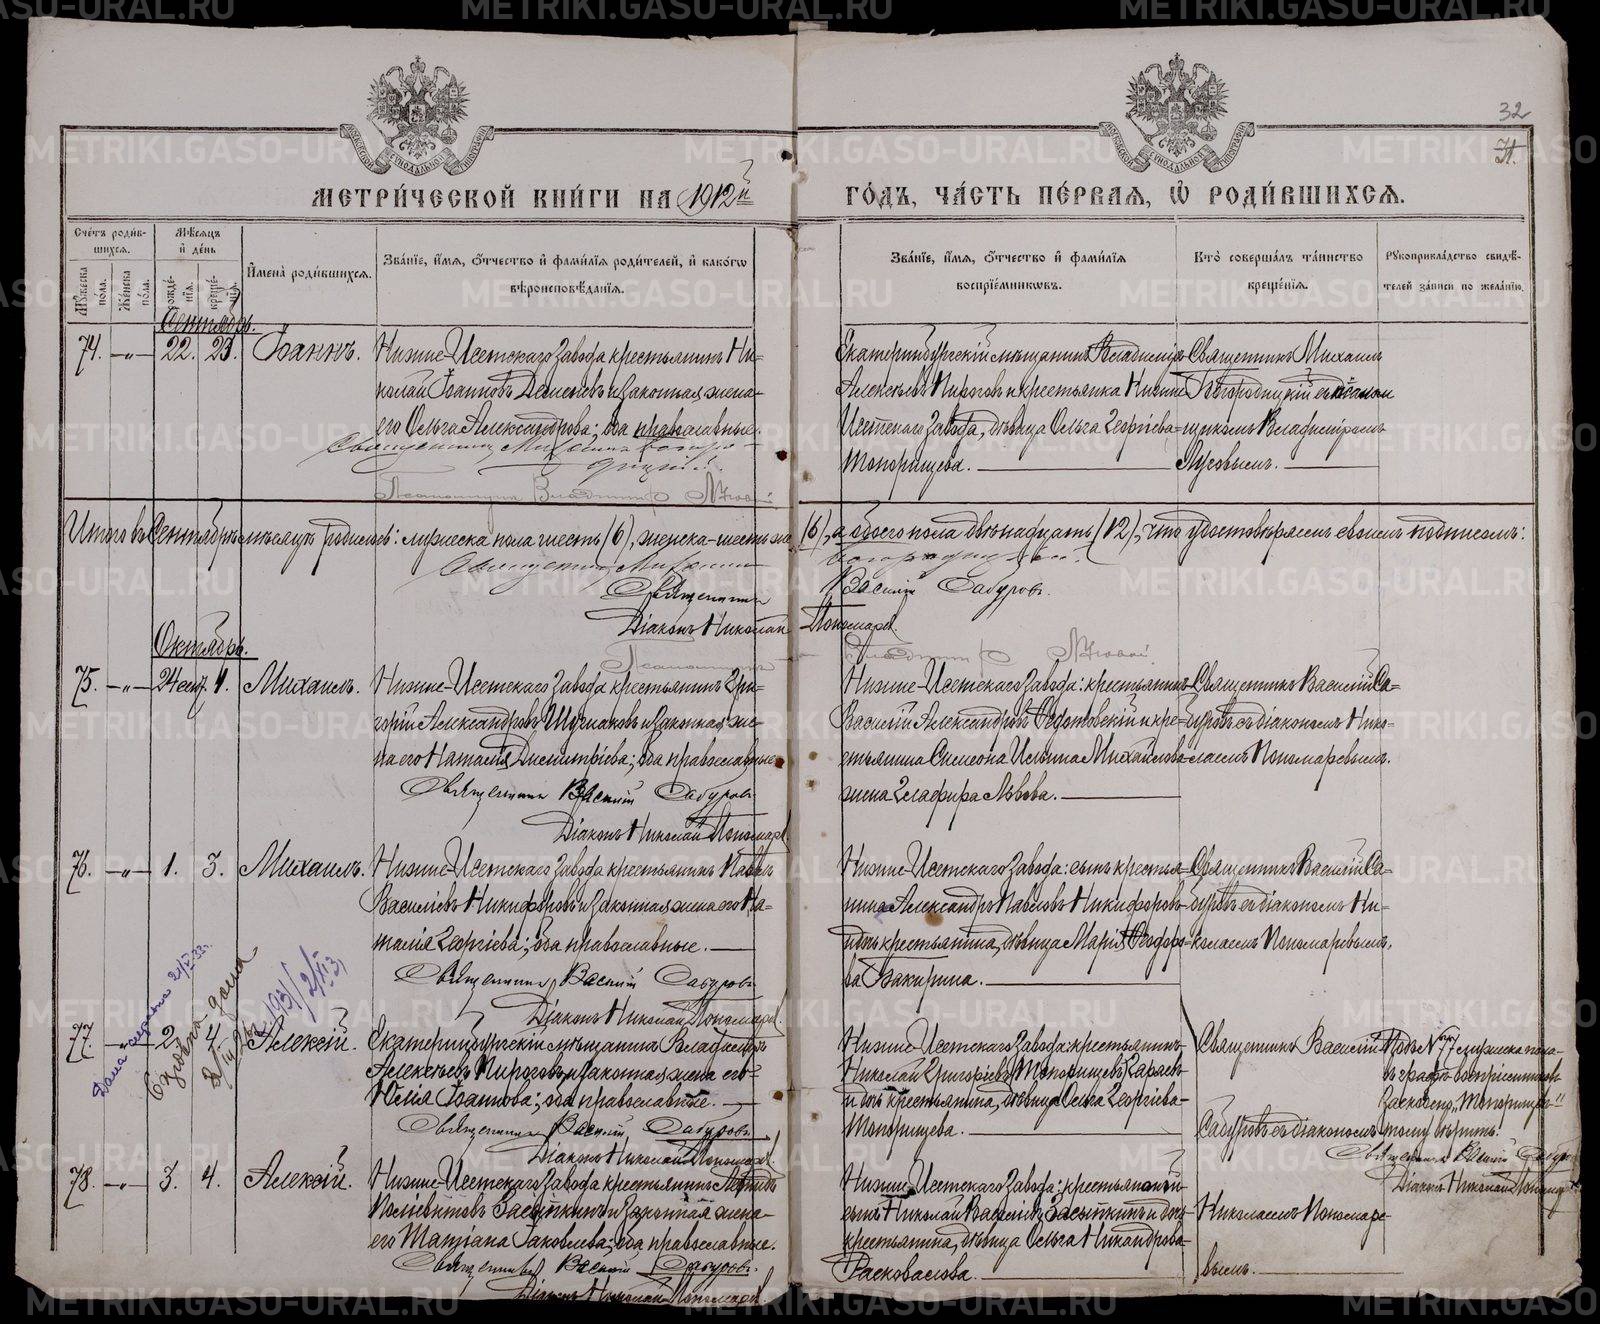 32
31.
МЕТРИ́ЧЕСКОЙ КНИ́ГИ НА 1912й
ГО́ДЪ, ЧА́СТЬ ПЕ́РВАЯ, Ѡ҆ РОДИ́ВШИХСЯ.
Сче́тъ роди́в-
шихся.
Му́жеска по́ла.
Же́нска по́ла.
Мѣ́сяцъ и҆ де́нь
рожде́-
нїя.
креще́-
нїя.
И҆мена̀ роди́вшихся.
Зва́нїе, и҆́мя, ѻ҆́тчество и҆ фами́лїя роди́телей, и҆ како́гѡ
вѣроисповѣ́данїя.
Зва́нїе, и҆́мя, ѻ҆́тчество и҆ фами́лїя
воспрїе́мникѡвъ.
Кто̀ соверша́лъ та́инство
креще́нїя.
Рꙋкоприкла́дство свидѣ́-
телей за́писи по жела́нїю.
Сентябрь.
74. -„- 22. 23. Іоаннъ.
Нижне-Исетскаго завода крестьянинъ Ни-
колай Іоанновъ и законная жена
его Ольга Александрова; оба православные.
Священникъ Михаилъ Богоро-
дицкій.
Псаломщикъ Владимiръ Луговой
Екатеринбургскій мѣщанинъ Владиміръ
Алексѣевъ Пироговъ и крестьянка Нижне
Исетскаго завода, дѣвица Ольга Георгіева
Топорищева.
Священникъ Михаилъ
Богородицкій съ псалом
щикомъ Владиміромъ
Луговымъ.
Итого въ Сентябрѣ мѣсяцѣ родилось: мужеска пола шесть (6), женска-шесть
(6), а обоего пола двѣнадцать (12), что удостовѣряемъ своимъ подписомъ:
Священникъ Михаилъ Богородицкій.
Священникъ Василій Сабуровъ.
Діаконъ Николай Пономарев
Псаломщикъ Владимiръ Луговой.
Октябрь.
75. -„- 24 сент. 1. Михаилъ.
Нижне-Исетскаго завода крестьянинъ Гри-
горій Александровъ и законная же-
на его Наталія Димитріева; оба православные.
Священникъ Василій Сабуровъ
Діаконъ Николай Пономарев
Нижне-Исетскаго завода: крестьянинъ
Василій Александровъ Федотовскій и кре-
стьянина Симеона Ильина Михайлова
жена Глафира Львова.
Священникъ Василій Са-
буровъ съ діакономъ Нико-
лаемъ Пономаревымъ.
76. -„- 1. 3. Михаилъ.
Нижне-Исетскаго завода крестьянинъ Павелъ
Василіевъ Никифоровъ и законная жена его На-
талія Георгіева; оба православные.
Священникъ Василій Сабуровъ
Діаконъ Николай Пономарев
Нижне-Исетскаго завода: сынъ крестья-
нина Александръ Павловъ Никифоровъ
и дочь крестьянина, дѣвица Марія Ѳеодоро-
ва Бакирина.
Священникъ Василій Са-
буровъ съ діакономъ Ни-
колаемъ Пономаревымъ.
77. -„- 2. 4. Алексій.
Екатеринбургскій мѣщанинъ Владиміръ
Алексѣевъ Пироговъ и законная жена его
Юлія Іоаннова; оба православные.
Священникъ Василій Сабуровъ
Діаконъ Николай Пономарев
Нижне-Исетскаго завода: крестьянинъ
Николай Григоріевъ Топорищевъ
и дочь крестьянина, дѣвица Ольга Георгіева
Топорищева.
Священникъ Василій
Сабуровъ съ діакономъ
Подъ № 77 мужеска пола
въ графѣ воспріемников
„Топорищев"
тому вѣрить.
Священникъ Василій Сабуровъ
Діаконъ Николай Пономарев
78. -„- 3. 4. Алексій.
Нижне-Исетскаго завода крестьянинъ
Засыпкинъ и законная жена
его Татіана Іаковлева; оба православные.
Священникъ Василій Сабуровъ.
Діаконъ Николай Пономарев
Нижне-Исетскаго завода: крестьянскій
сынъ Николай Василіевъ Засыпкинъ и дочь
крестьянина, дѣвица Ольга Никандрова
Расковалова.
Николаемъ Пономаре-
вымъ.